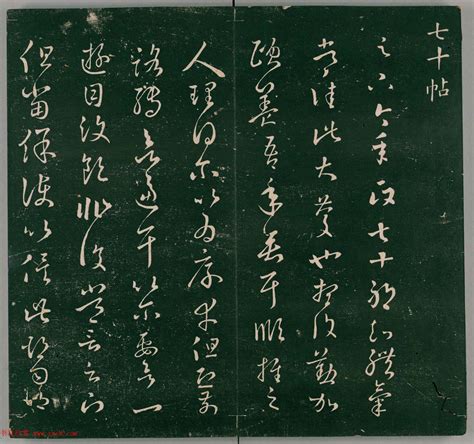 七十帖
足下今年政七十耶知體氣
常佳此大慶也想復懃加
頤養吾年垂耳順推之
人理得爾以為厚幸但恐前
路轉欲逼耳以爾要欲一
遊目汶領非復常言足下
但當保護以俟此期勿謂